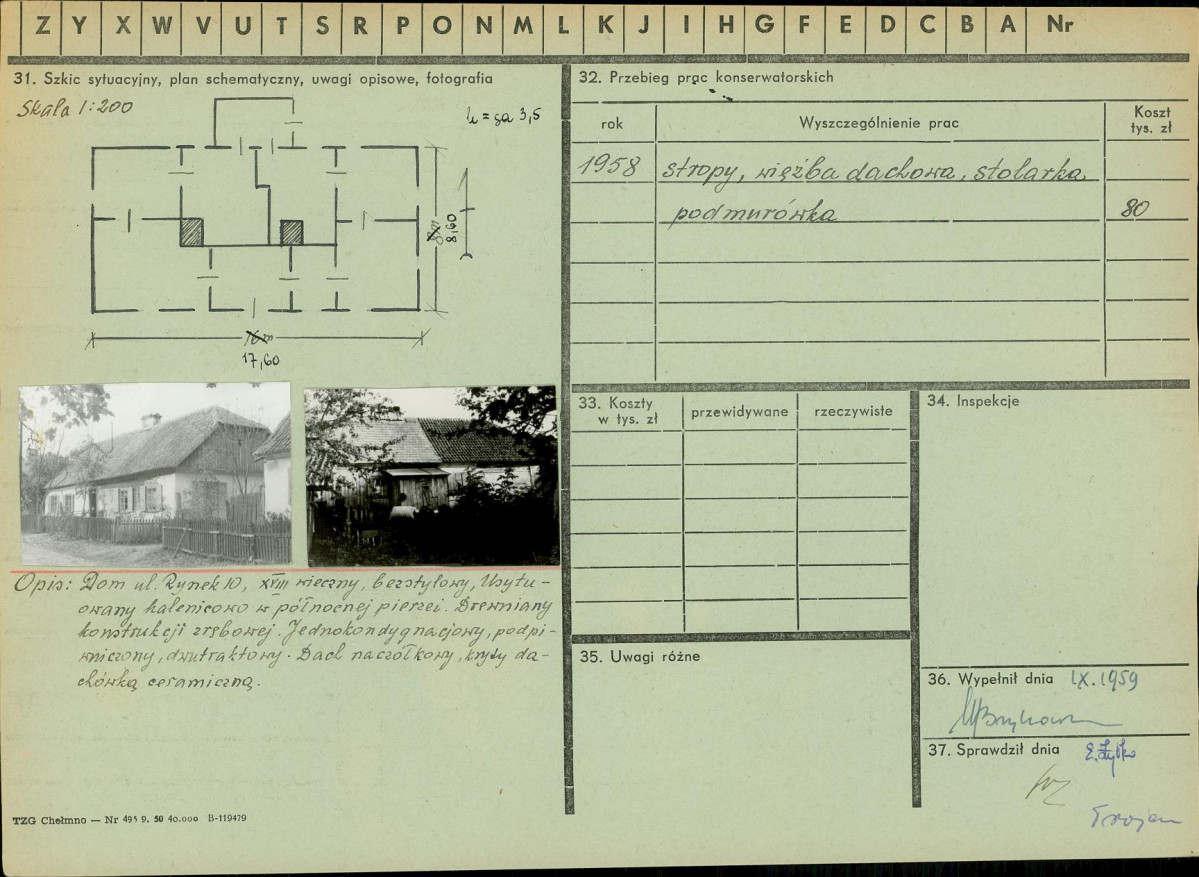 Z Y X W V U T S R P O N M L K J I H G F E D C B A Nr
31. Szkic sytuacyjny, plan schematyczny, uwagi opisowe, fotografia
Skala 1:200
h = ga 3,5
8m
8,60
16m
17,60
Opis: Dom ul. Rynek 10, XVIII wieczny, bezstylowy, Usytu-
owany kalenicowo w północnej pierzei. Drewniany
konstrukcji zrębowej. Jednokondygnacjowy, podpi-
wniczony, dwutraktowy. Dach naczółkowy, kryty da-
chówką ceramiczną.
TZG Chełmno — Nr 495 9. 50 40.000 B-119479
32. Przebieg prac konserwatorskich
rok Wyszczególnienie prac Koszt tys. zł
1958 stropy, więźba dachowa, stolarka
podmurówka 80
33. Koszty w tys. zł przewidywane rzeczywiste
34. Inspekcje
35. Uwagi różne
36. Wypełnił dnia IX.1959
37. Sprawdził dnia
Trojan